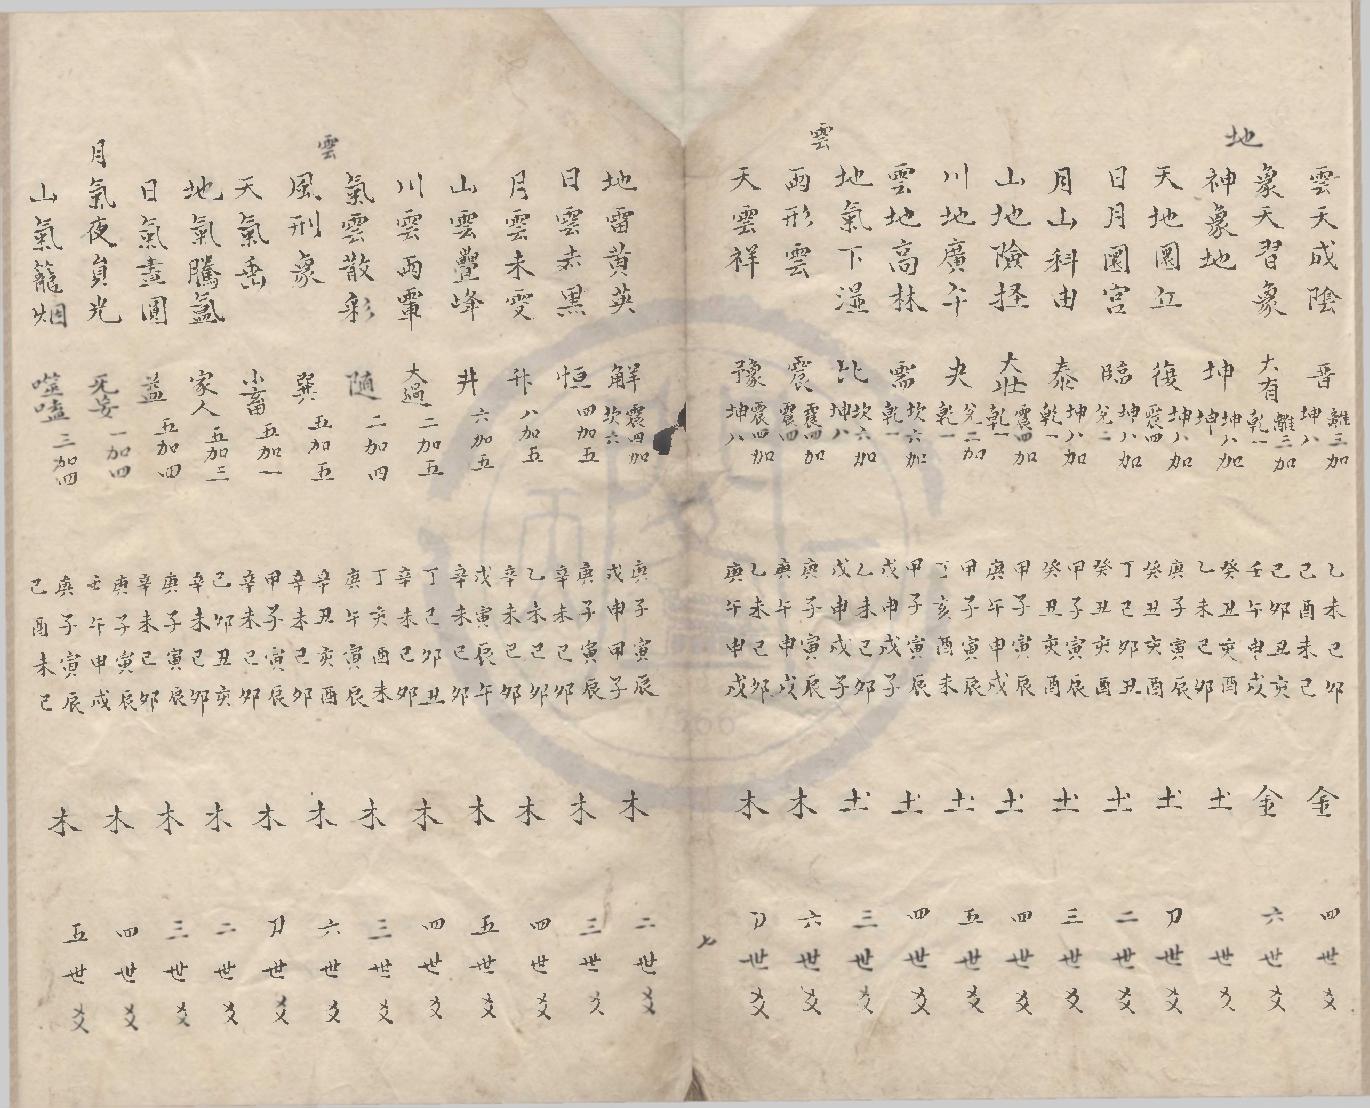 雲天成陰 晋 離三加坤八 乙未巳卯 己酉未巳 金 四世爻
象天習象 大有 離三加乾一 己卯丑亥 壬午申戌 金 六世爻
地
神象地 坤 坤八加坤 癸丑亥酉 乙未巳卯 土 世爻
天地圜丘 復 坤八加震四 庚子寅辰 癸丑亥酉 土 刀世爻
日月圜宫 臨 坤八加兌二 丁巳卯丑 癸丑亥酉 土 二世爻
月山科由 泰 坤八加乾一 甲子寅辰 癸丑亥酉 土 三世爻
山地險拯 大壯 震四加乾一 甲子寅辰 庚午申戌 土 四世爻
川地廣平 夬 兌二加乾一 甲子寅辰 丁亥酉未 土 五世爻
雲地高林 需 坎六加乾一 甲子寅辰 戊申戌子 土 四世爻
地氣下湿 比 坎六加坤八 乙未巳卯 戊申戌子 土 三世爻
雲
雨形雲 震 震四加震四 庚子寅辰 庚午申戌 木 六世爻
天雲祥 豫 震四加坤八 乙未巳卯 庚午申戌 木 刀世爻
七
地雷黄英 解 震四加坎六 庚子寅辰 戊申甲子 木 二世爻
日雲赤黑 恒 四加五 庚子寅辰 辛未巳卯 木 三世爻
月雲未雯 升 八加五 乙未巳卯 辛未巳卯 木 四世爻
山雲疊峰 井 六加五 戊寅辰午 辛未巳卯 木 五世爻
川雲雨覃 大過 二加五 丁巳卯丑 辛未巳卯 木 四世爻
氣雲散彩 随 二加四 丁亥酉未 庚午寅辰 木 三世爻
雲
風刑象 巽 五加五 辛丑亥酉 辛未巳卯 木 六世爻
天氣垂 小畜 五加一 甲子寅辰 辛未巳卯 木 刀世爻
地氣騰氳 家人 五加三 己卯丑亥 辛未巳卯 木 二世爻
日氣晝圓 益 五加四 庚子寅辰 辛未巳卯 木 三世爻
月氣夜負光 旡妄 一加四 庚子寅辰 壬午申戌 木 四世爻
山氣籠烟 噬嗑 三加四 庚子寅辰 己酉未巳 木 五世爻